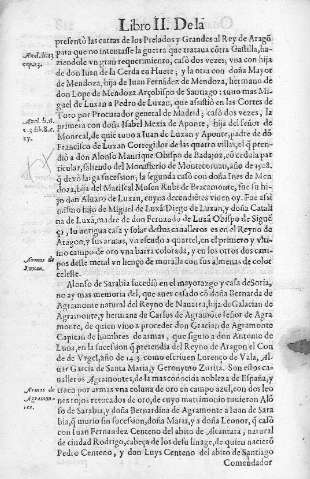 Libro II. De la
presentò las cartas de los Prelados y Grandes al Rey de Aragõ
para que no intentasse la guerra que trataua cõtra Castilla, ha-
ziendole vn gran requerimiento, casò dos vezes, vna con hija
de don Iuan de la Cerda en Huete; y la otra con doña Mayor
de Mendoza, hija de Iuan Fernãdez de Mendoza, hermano de
don Lope de Mendoza Arçobispo de Santiago: tuuo mas Mi-
guel de Luxan a Pedro de Luxan, que assistio en las Cortes de
Toro por Procurador general de Madrid; casò dos vezes, la
primera con doña Isabel Mexia de Aponte, hija del señor de
Monreal, de quien tuuo a Iuan de Luxan y Aponte, padre de dõ
Francisco de Luxan Corregidor de las quatro villas, el q̃ pren-
dio a don Alonso Manrique Obispo de Badajoz, cõ cedula par-
ticular, saliendo del Monasterio de Montecorban, año de
q̃ devò la gran sucession, la segunda casò con doña Ines de Men-
doza, hija del Mariscal Mosen Rubi de Bracamonte, fue su hi-
jo don Aluaro de Luxan, cuyos decendiẽtes viẽ oy. Fue assi
mismo hijo de Miguel de Luxã Diego de Luxan, y doña Catali-
na de Luxã, madre de don Fernando de Luxã Obispo de Siguẽ-
ça, su antigua casa y solar destos caualleros es en el Reyno de
Aragon, y sus armas, vn escudo a quartel, en el primero y vlti-
mo campo de oro vna barra colorada, y en los otros dos cam-
pos deste metal vn lienço de muralla con sus almenas de color
celeste.
Alonso de Sarabia sucediò en el mayorazgo y casa de Soria,
no ay mas memoria del, que auer estado cõ doña Bernarda de
Agramonte natural del Reyno de Nauarra, hija de Galacian de
Agramonte, y hermana de Carlos de Agramõte señor de Agra-
monte, de quien vino a proceder don Gracian de Agramonte
Capitan de hombres de armas, que siguio a don Antonio de
Luna, en la sucession q̃ pretendia del Reyno de Aragon el Con-
de de Vrgel, año de como escriuen Lorenço de Vala, Al-
uar Garcia de Santa Maria, y Geronymo Zurita. Son estos ca-
ualleros Agramonteses, de la mas conocida nobleza de España,
traen por armas vna coluna de oro en campo azul, con dos leo-
nes rojos retocados de oro, de cuyo matrimonio tuuieron Alõ-
so de Sarabia, y doña Bernardina de Agramonte a Iuan de Sara-
bia, q̃ murio sin sucession, doña Maria, y a doña Leonor, q̃ casò
con Iuan Fernandez Centeno del abito de Alcantara, natural
de ciudad Rodrigo, cabeça de los deste linage, de quien nacierõ
Pedro Centeno, y don Luys Centeno del abito de Santiago
Comendador
Armas de
Luxan.
Armas de
Agramon-
tes.